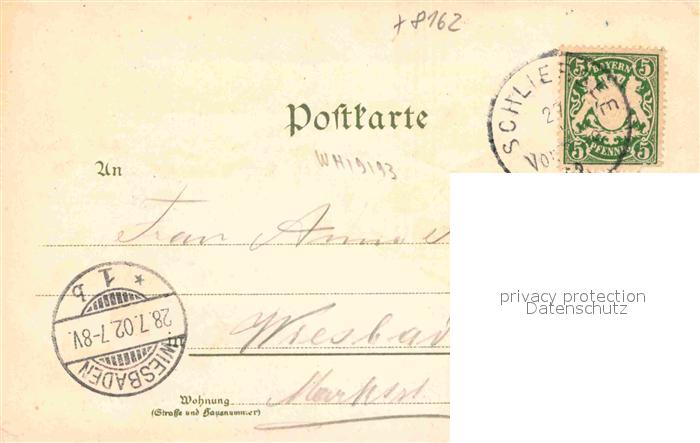 +8162
BAYERN
5 5
5 5
PFENNIG
SCHLIERSEE
27
Vor
Postkarte
WH19193
An
Frau Anna
privacy protection
Datenschutz
* 1 b
28.7.02.7-8V.
WIESBADEN
Wiesbad
Wohnung
(Straße und Hausnummer)
Marktst